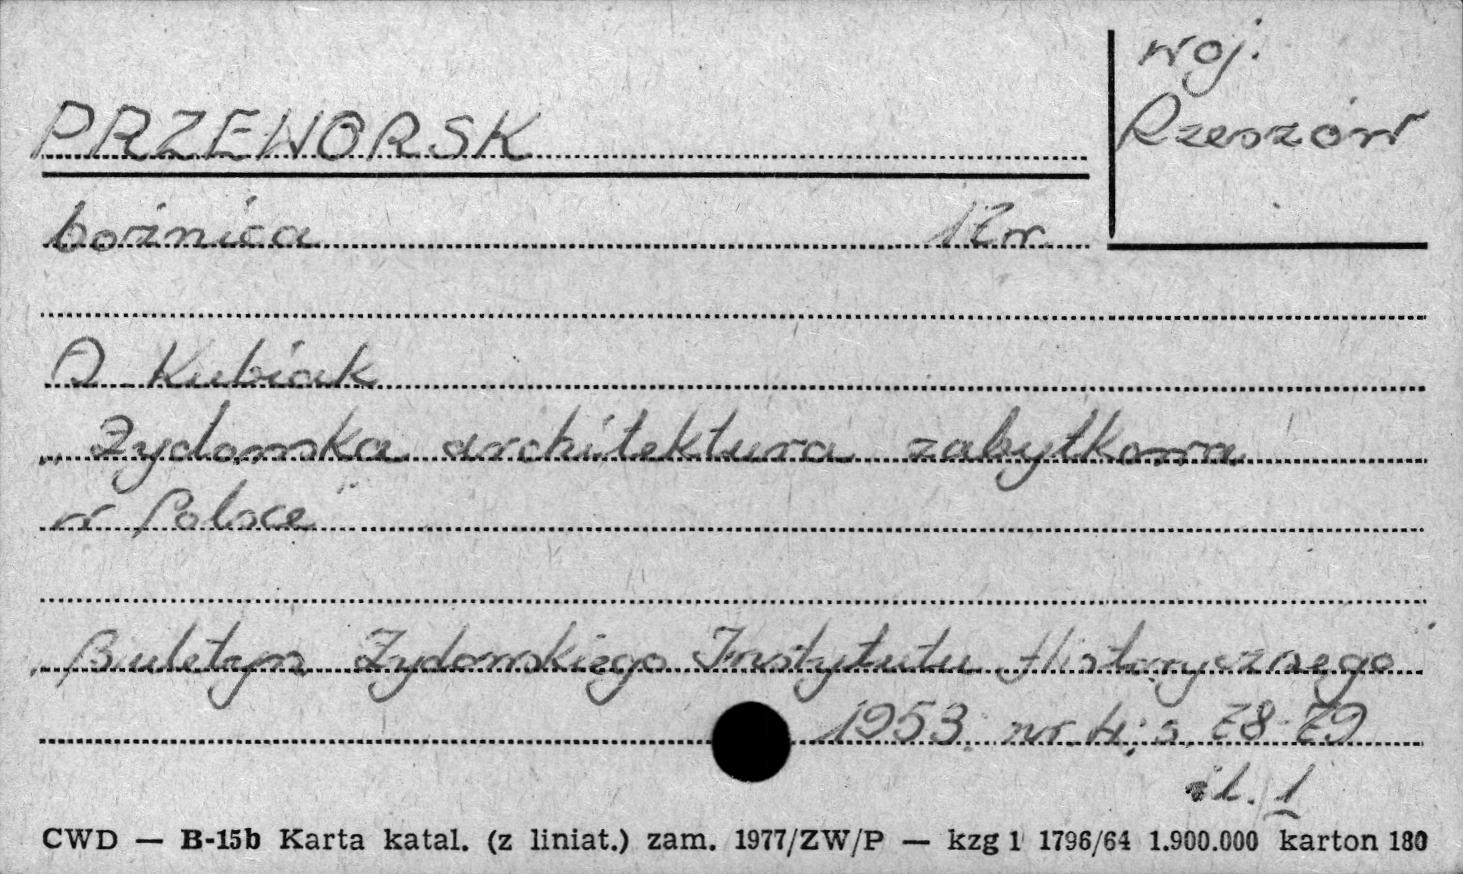 woj.
Rzeszów
PRZEWORSK
bożnica 17 w.
A. Kubiak
„Żydowska architektura zabytkowa
w Polsce”
„Biuletyn Żydowskiego Instytutu Historycznego
1953. nr. 4; s. 78-79
il. 1
CWD — B-15b Karta katal. (z liniat.) zam. 1977/ZW/P — kzg 1 1796/64 1.900.000 karton 180